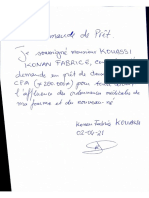 Demande de Prêt.
Je soussigné monsieur KOUASSI
KONAN FABRICE,
demande un prêt de
CFA (≠200.000≠) pour
des ordonnances médicales de
ma femme et du nouveau-né
Konan Fabrice KOUASSI
02-04-21